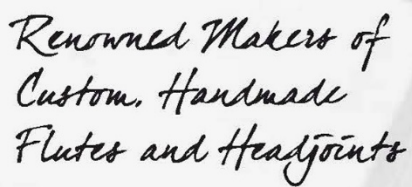 Renowned Makers of
Custom, Handmade
Flutes and Headjoints